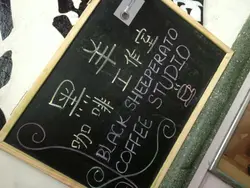 黑羊
咖啡工作室
BLACK SHEEPERATO
COFFEE STUDIO